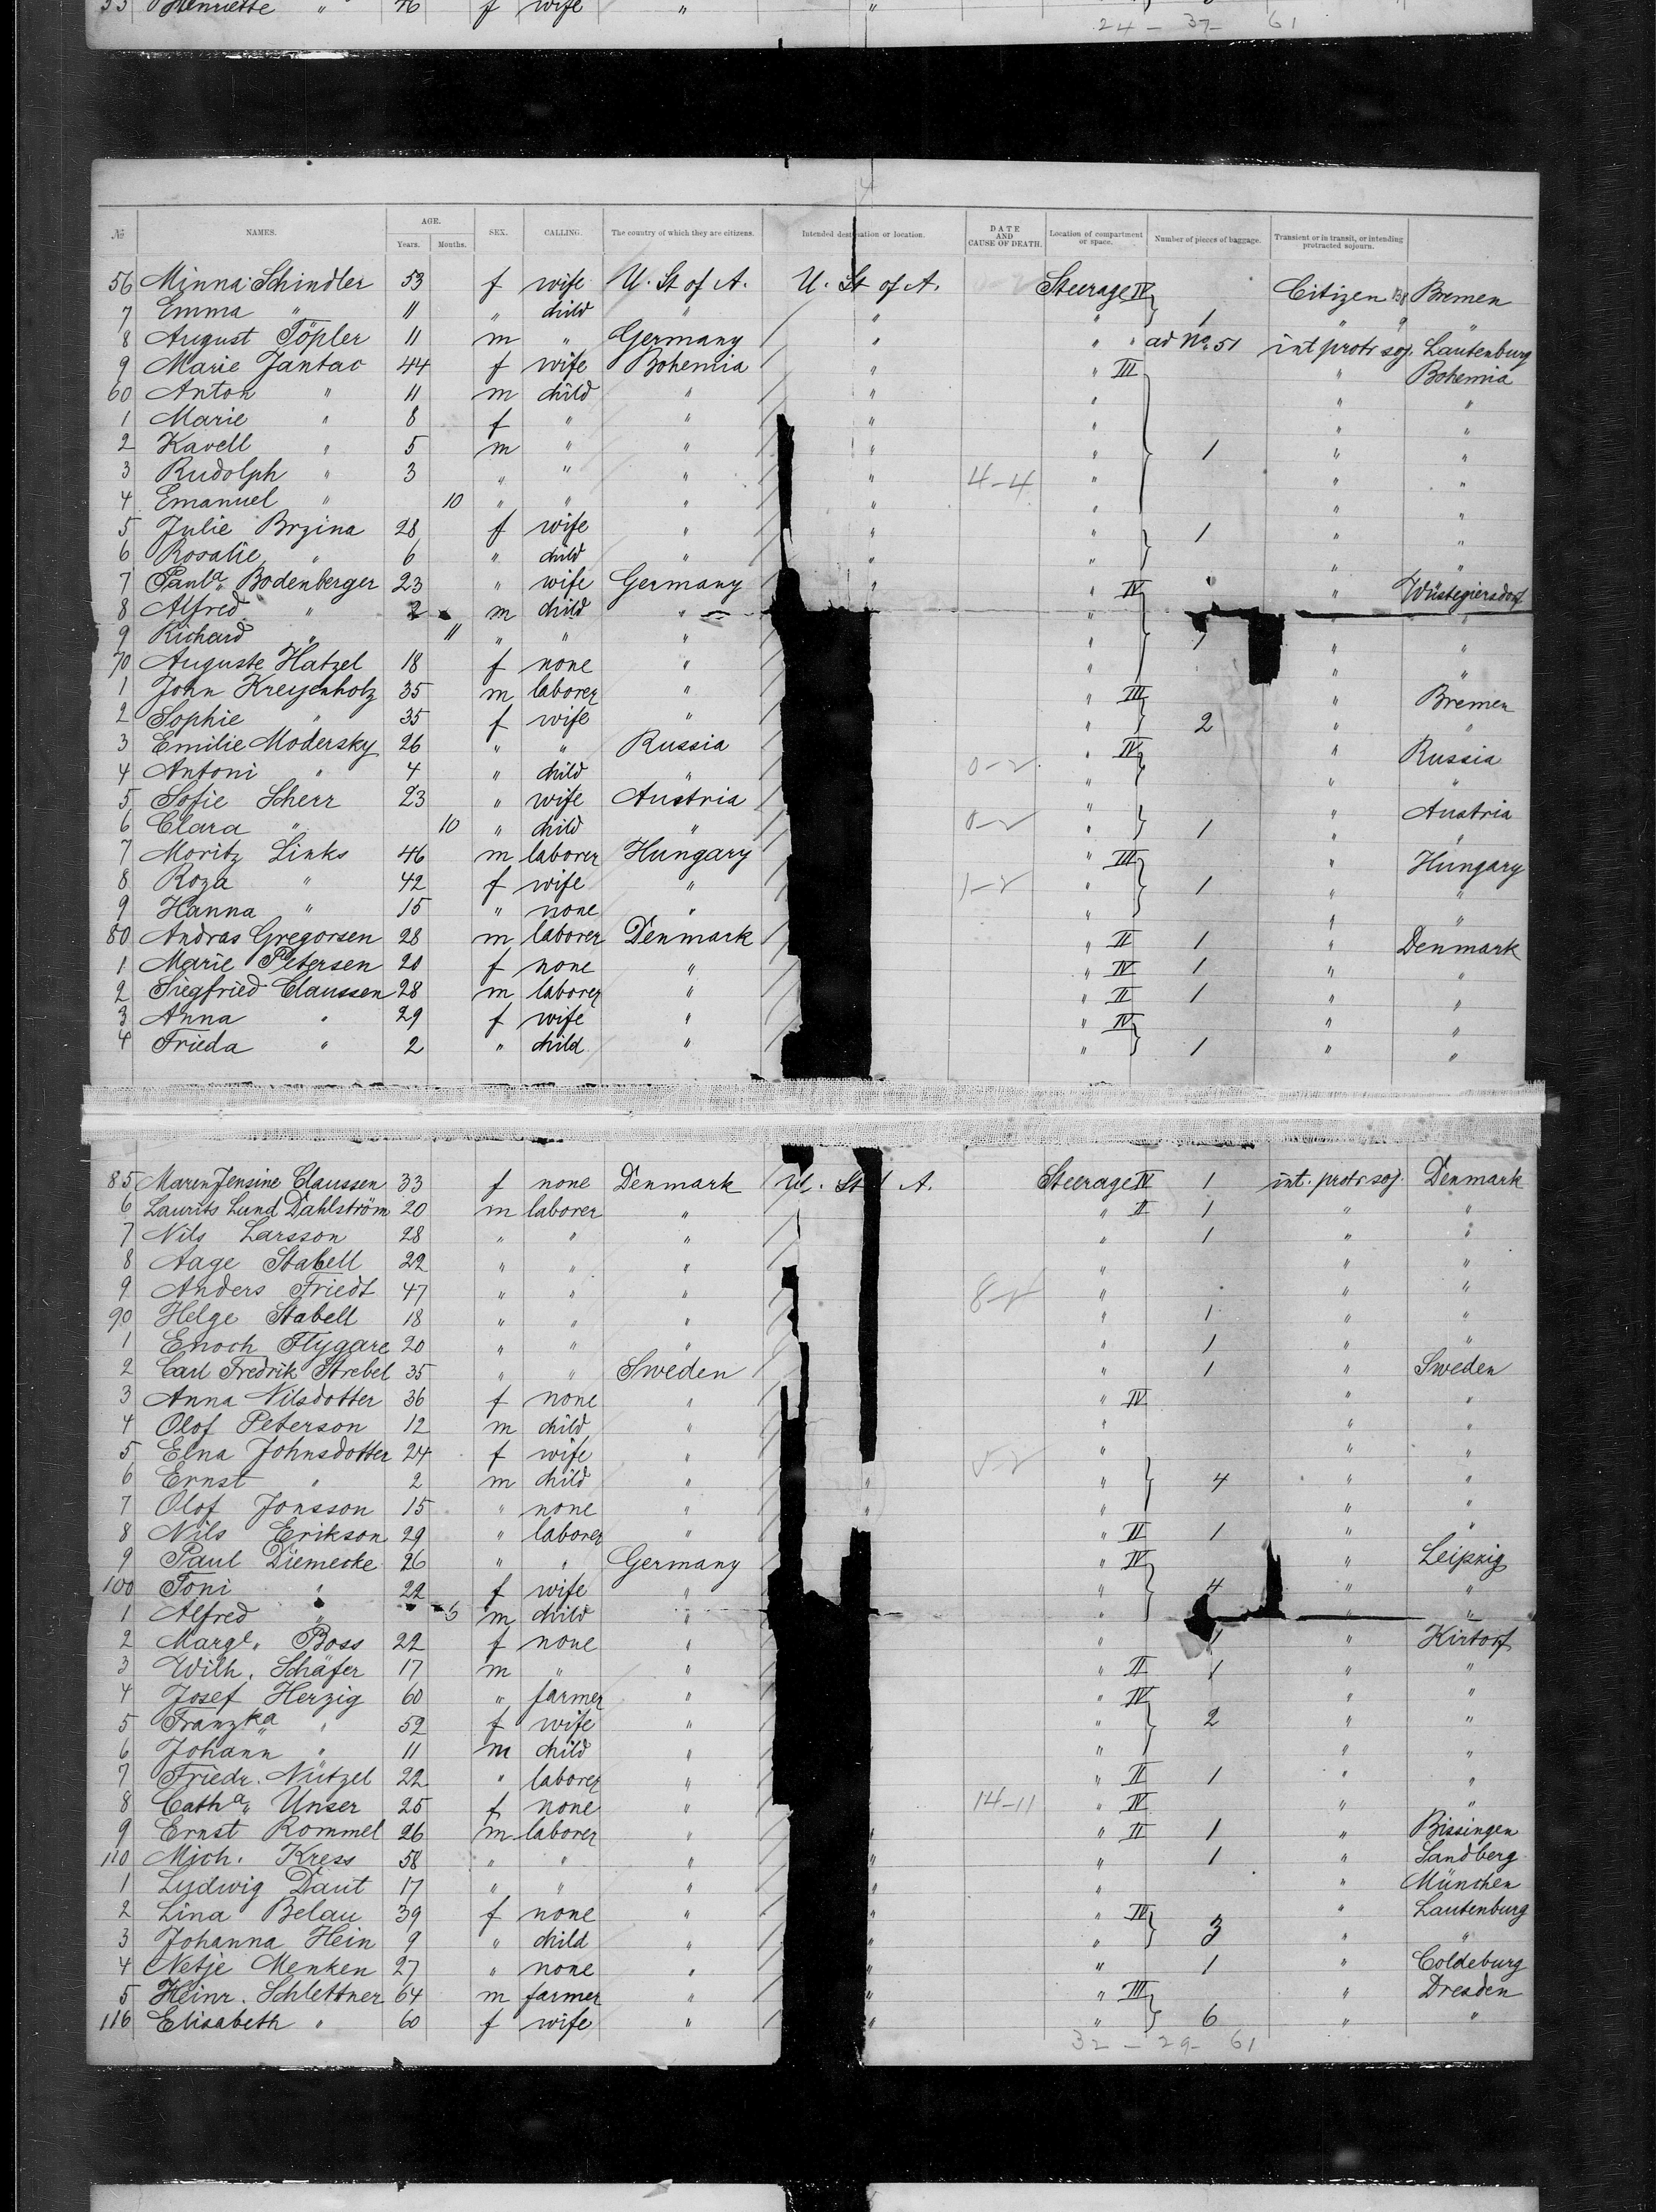 55 Henriette " 46 f wife " "
24 - 37 - 61
4
№ NAMES. AGE. Years. Months. SEX. CALLING. The country of which they are citizens. Intended destination or location. DATE AND CAUSE OF DEATH. Location of compartment or space. Number of pieces of baggage. Transient or in transit, or intending protracted sojourn.
56 Minna Schindler 53 f wife U. St of A. U. St of A. Steerage IV Citizen Bremen
7 Emma " 11 " child " " " 1 " "
8 August Töpler 11 m " Germany " " " ad No. 51 int protr soj. Lautenburg
9 Marie Jantac 44 f wife Bohemia " " III " Bohemia
60 Anton " 11 m child " " " " "
1 Marie " 8 f " " " " " "
2 Kavell " 5 m " " " " 1 " "
3 Rudolph " 3 " " " " 4-4 " " "
4 Emanuel " 10 " " " " " " "
5 Julie Brzina 28 f wife " " " 1 " "
6 Rosalie " 6 " child " " " " "
7 Paula Bodenberger 23 " wife Germany " " IV " Wüstegiersdorf
8 Alfred " 2 m child " " " "
9 Richard " 11 " " " " 1 " "
70 Auguste Hatzel 18 f none " " " "
1 John Kreyenholz 35 m laborer " " III " Bremen
2 Sophie " 35 f wife " " 2 " "
3 Emilie Modersky 26 " " Russia " IV " Russia
4 Antoni " 4 " child " 0-2 " " "
5 Sofie Scherr 23 " wife Austria " " Austria
6 Clara " 10 " child " 0-2 " 1 " "
7 Moritz Links 46 m laborer Hungary " III " Hungary
8 Roza " 42 f wife " 1-2 " 1 " "
9 Hanna " 15 " none " " " "
80 Andras Gregorsen 28 m laborer Denmark " II 1 " Denmark
1 Marie Petersen 20 f none " " IV 1 " "
2 Siegfried Claussen 28 m laborer " " II 1 " "
3 Anna " 29 f wife " " IV " "
4 Frieda " 2 " child " " 1 " "
85 Maren Jensine Claussen 33 f none Denmark U. St A. Steerage IV 1 int. protr soj. Denmark
6 Laurits Lund Dahlström 20 m laborer " " II 1 " "
7 Nils Larsson 28 " " " " 1 " "
8 Aage Stabell 22 " " " " " "
9 Anders Friedt 47 " " " " " "
90 Helge Stabell 18 " " " " 1 " "
1 Enoch Flygare 20 " " " " 1 " "
2 Carl Fredrik Strebel 35 " " Sweden " 1 " Sweden
3 Anna Nilsdotter 36 f none " " IV " "
4 Olof Peterson 12 m child " " " "
5 Elna Johnsdotter 24 f wife " " " "
6 Ernst " 2 m child " " " 4 " "
7 Olof Jonsson 15 " none " " " " "
8 Nils Erikson 29 " laborer " " II 1 " "
9 Paul Diemecke 26 " " Germany " IV " Leipzig
100 Toni " 22 f wife " " 4 " "
1 Alfred " 6 m child " " " "
2 Margl. Boss 22 f none " " 1 " Kirtorf
3 Wilh. Schäfer 17 m " " " II 1 " "
4 Josef Herzig 60 " farmer " " IV " "
5 Franzka " 52 f wife " " 2 " "
6 Johann " 11 m child " " " "
7 Friedr. Nützel 22 " laborer " " II 1 " "
8 Catha Unser 25 f none " 14-11 " IV " "
9 Ernst Rommel 26 m laborer " " " II 1 " Bissingen
110 Mich. Kress 58 " " " " " 1 " Sandberg
1 Ludwig Daut 17 " " " " " " München
2 Lina Belau 39 f none " " " IV " Lautenburg
3 Johanna Hein 9 " child " " " 3 " "
4 Netje Menken 27 " none " " " 1 " Coldeburg
5 Heinr. Schlettner 64 m farmer " " " III " Dresden
116 Elisabeth " 60 f wife " " " 6 " "
32 - 29 - 61